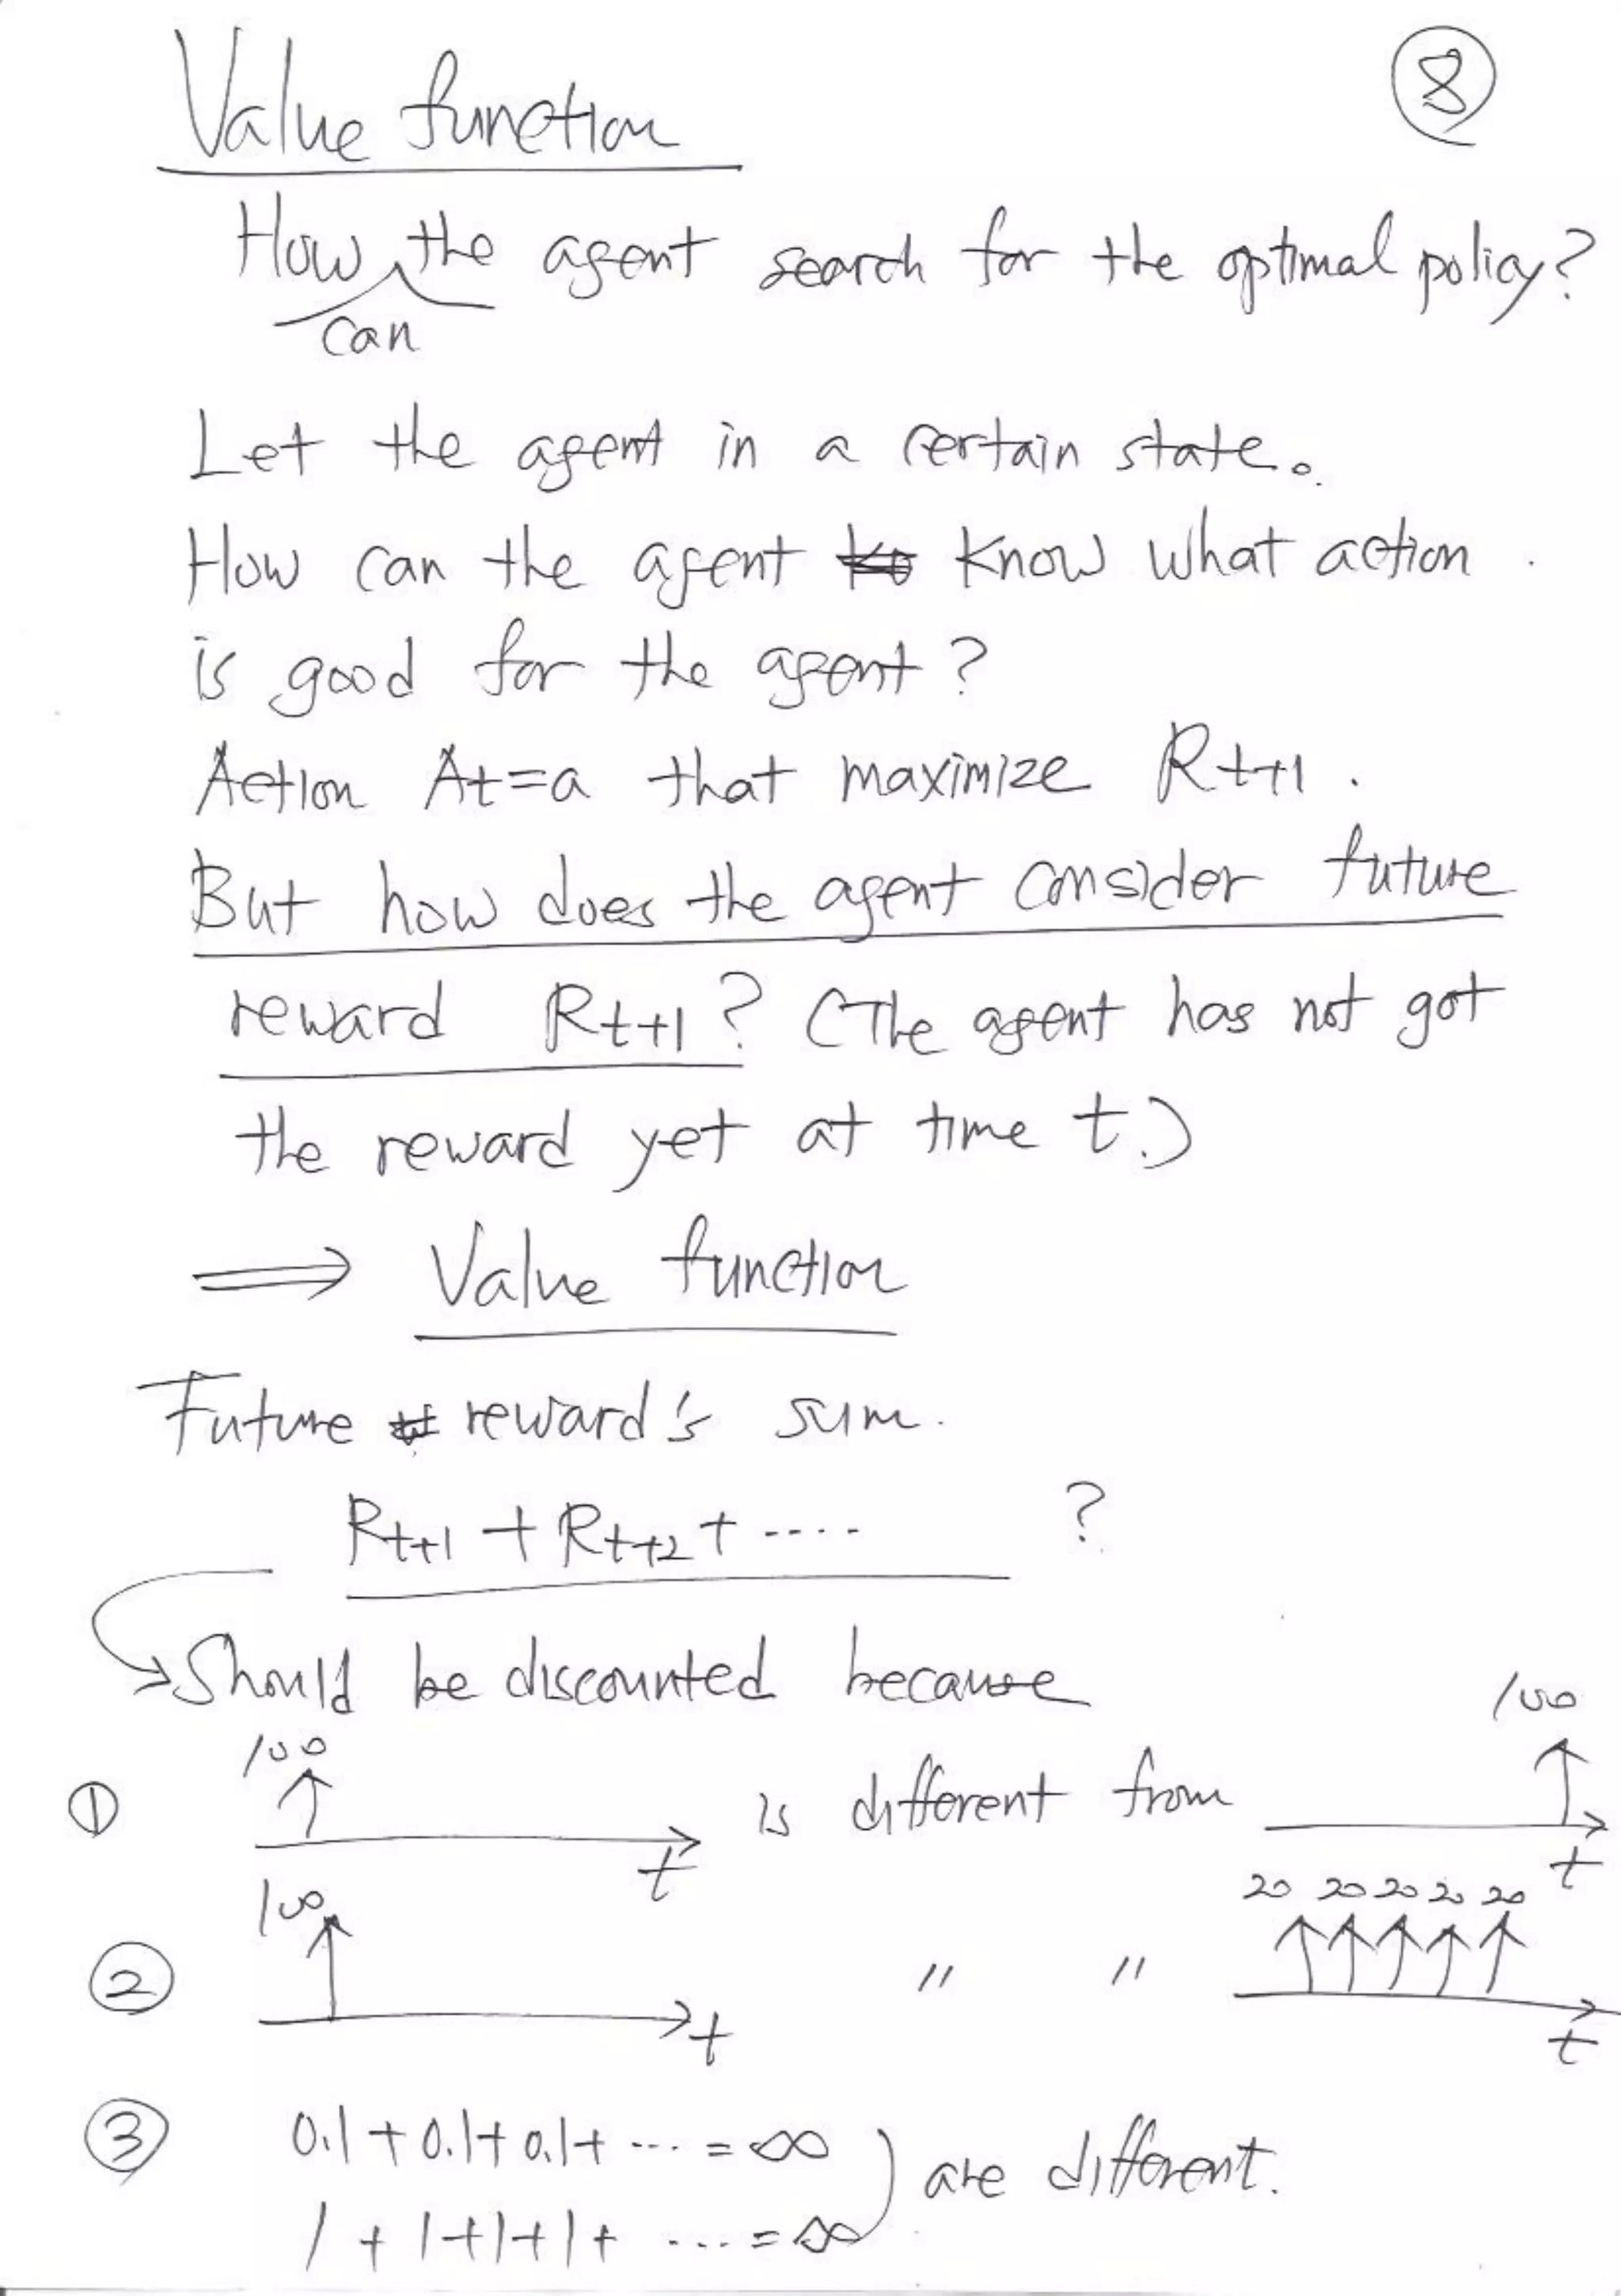 Value function
⑧
How the agent search for the optimal policy?
can
Let the agent in a certain state.
How can the agent know what action
is good for the agent?
Action At=a that maximize Rt+1.
But how does the agent consider future
reward Rt+1? (The agent has not got
the reward yet at time t.)
⇒ Value function
Future reward's sum.
Rt+1 + Rt+2 + ···· ?
Should be discounted because
① 100 t is different from 100 t
② 100 t " " 20 20 20 20 20 t
③ 0.1+0.1+0.1+ ···· = ∞
1+1+1+1+ ···· = ∞
are different.